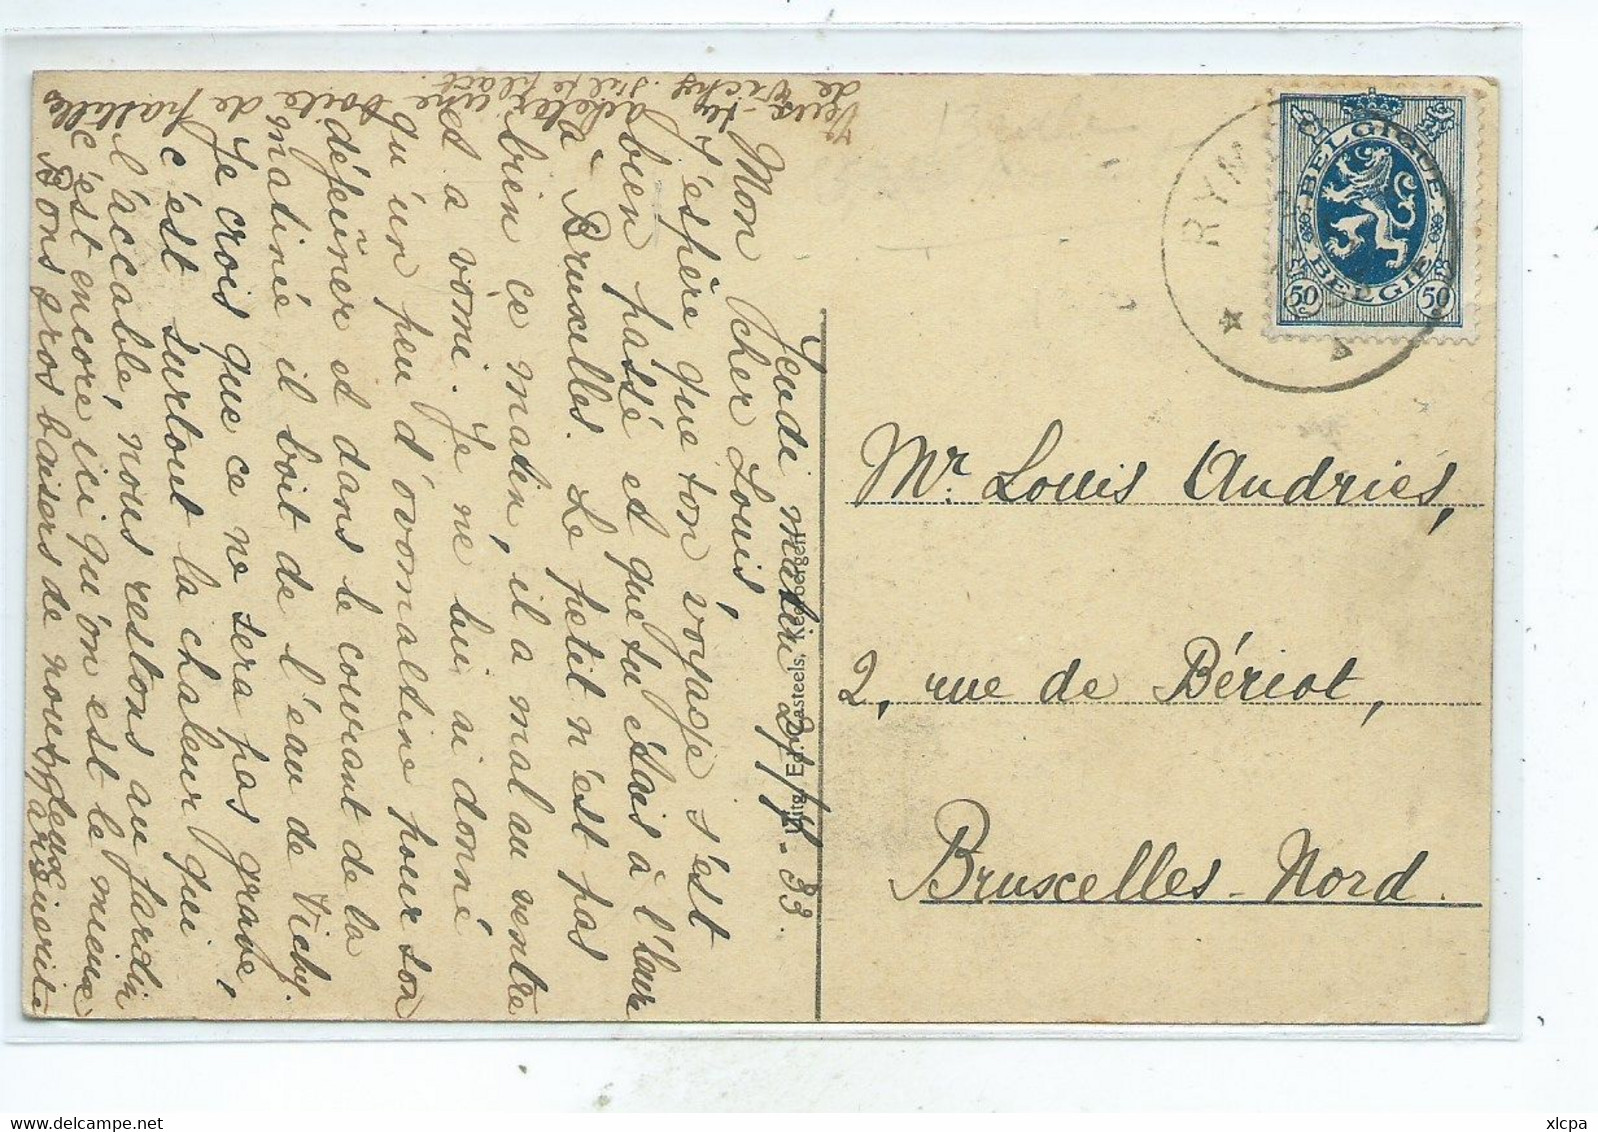 Jeudi matin 27/7-33
Mon cher Louis,
J'espère que ton voyage s'est
bien passé et que tu étais à l'heure
à Bruxelles. Le petit n'est pas
bien ce matin, il a mal au ventre
et a vomi. Je ne lui ai donné
qu'un peu d'ovomaltine pour son
déjeuner et dans le courant de la
matiné il boit de l'eau de Vichy.
Je crois que ce ne sera pas grave,
c'est surtout la chaleur qui
l'accable, nous restons au jardin
c'est encore ici qu'on est le mieux
Bons gros baisers de nous deux
Marguerite
Veux-tu acheter une boite de pastilles
de Vichy. s'il te plaît.
Uitg. Ed. Casteels, Keerbergen
RYM
BELGIQUE
BELGIE
50 50
Mr. Louis Andries,
2, rue de Bériot,
Bruxelles-Nord.
xlcpa